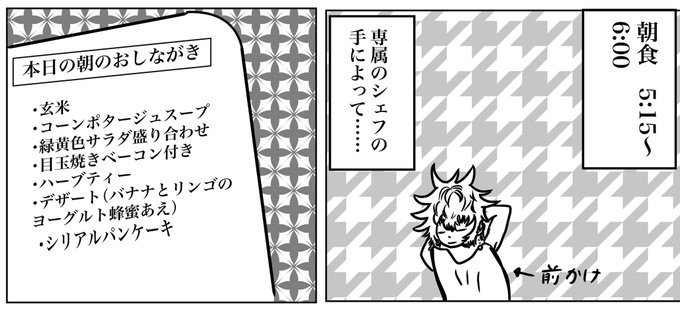 朝食　5:15〜
6:00
専属のシェフの
手によって……
←前かけ
本日の朝のおしながき
・玄米
・コーンポタージュスープ
・緑黄色サラダ盛り合わせ
・目玉焼きベーコン付き
・ハーブティー
・デザート（バナナとリンゴの
ヨーグルト蜂蜜あえ）
・シリアルパンケーキ